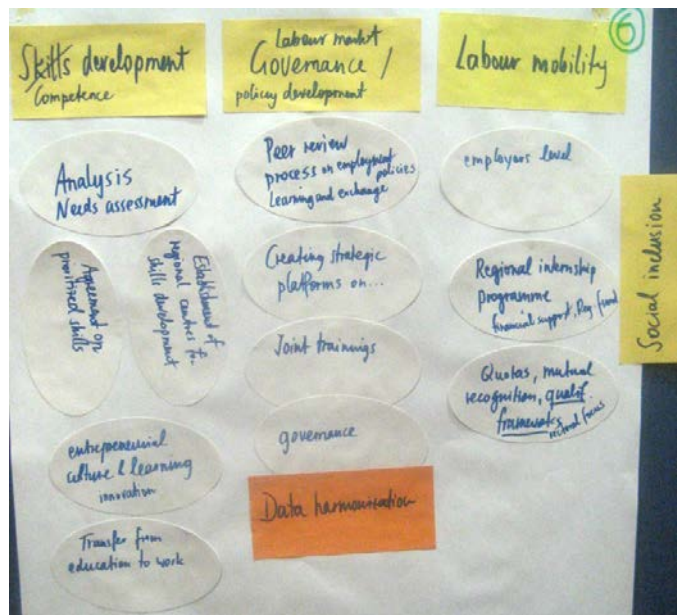 6
Skills development
Competence
Analysis
Needs assessment
Agreement on
prioritized skills
Establishment of
regional centres for
skills development
entrepreneurial
culture & learning
innovation
Transfer from
education to work
Labour market
Governance /
policy development
Peer review
process on employment
policies
Learning and exchange
Creating strategic
platforms on...
Joint trainings
governance
Data harmonisation
Labour mobility
employers level
Regional internship
programme
financial support, Reg fund
Quotas, mutual
recognition, qualif.
frameworks
focus
Social inclusion